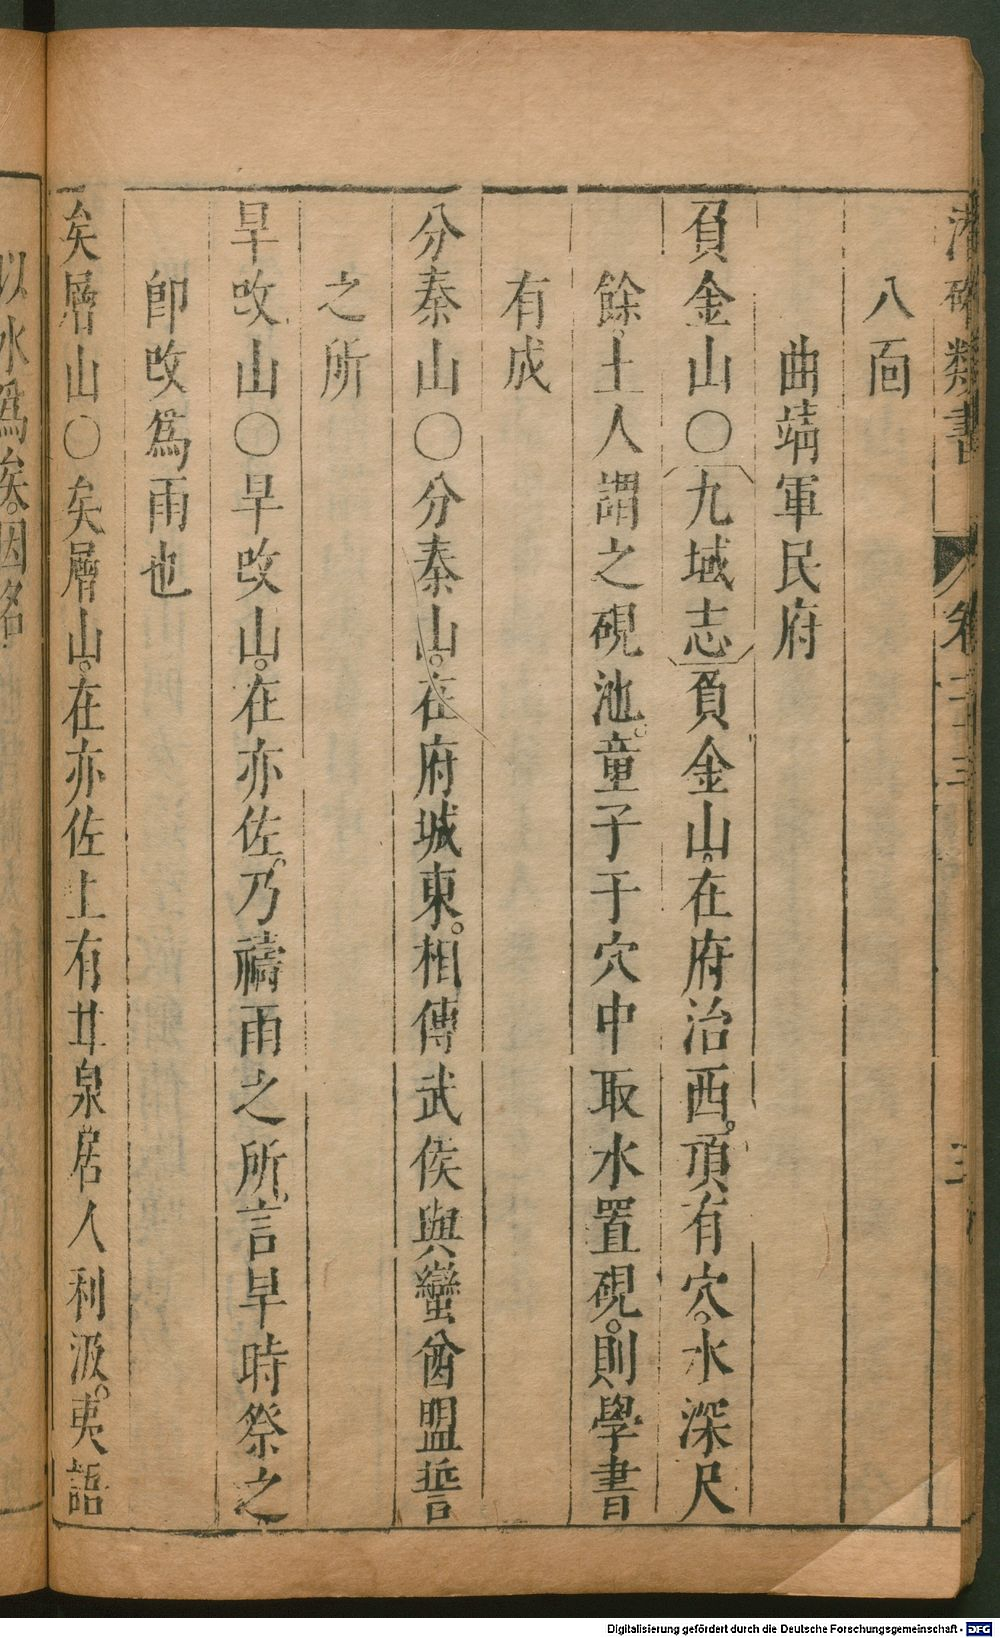 潛確類書 卷二十三 三
八面
曲靖軍民府
負金山〇九域志負金山。在府治西。頂有穴。水深尺
餘。土人謂之硯池。童子于穴中取水置硯。則學書
有成
分秦山〇分秦山。在府城東。相傳武侯與蠻酋盟誓
之所
旱改山〇旱改山。在亦佐。乃禱雨之所。言旱時祭之
卽改爲雨也
矣層山〇矣層山。在亦佐上有井泉居人利汲。夷語
以水爲矣。因名
Digitalisierung gefördert durch die Deutsche Forschungsgemeinschaft - DFG